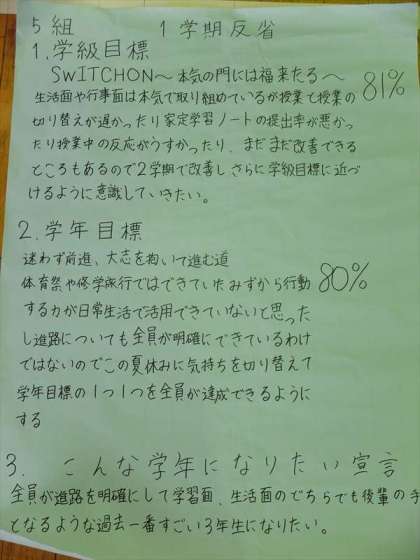 5組 1学期反省
1.学級目標
SWITCHON〜本気の門には福来たる〜 81%
生活面や行事面は本気で取り組めているが授業と授業の
切り替えが遅かったり家定学習ノートの提出率が悪かっ
たり授業中の反応がうすかったり、まだまだ改善できる
ところもあるので2学期で改善しさらに学級目標に近づ
けるように意識していきたい。
2.学年目標
迷わず前進、大志を抱いて進む道
体育祭や修学旅行ではできていたみずから行動 80%
する力が日常生活で活用できていないと思った
し進路についても全員が明確にできているわけ
ではないのでこの夏休みに気持ちを切り替えて
学年目標の1つ1つを全員が達成できるように
する
3. こんな学年になりたい宣言
全員が進路を明確にして学習面、生活面のどちらでも後輩の手
となるような過去一番すごい3年生になりたい。